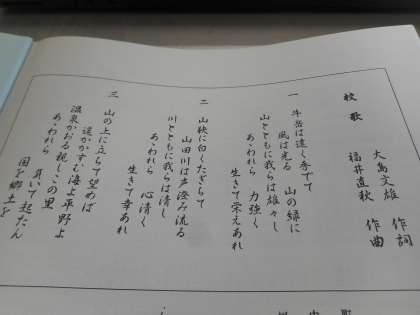 校歌
大島文雄 作詞
福井直秋 作曲
一 牛岳は遠く秀でて
風は光る 山の緑に
山とともに我らは雄々し
あゝわれら 力強く
生きて栄えあれ
二 山峡に白くたぎちて
山田川は戸澄み流る
川とともに我らは清し
あゝわれら 心清く
生きて幸あれ
三 山の上に立ちて望めば
遥かかすむ海よ平野よ
温泉かおる親しこの里
あゝわれら
負いて起たん
国を郷土を